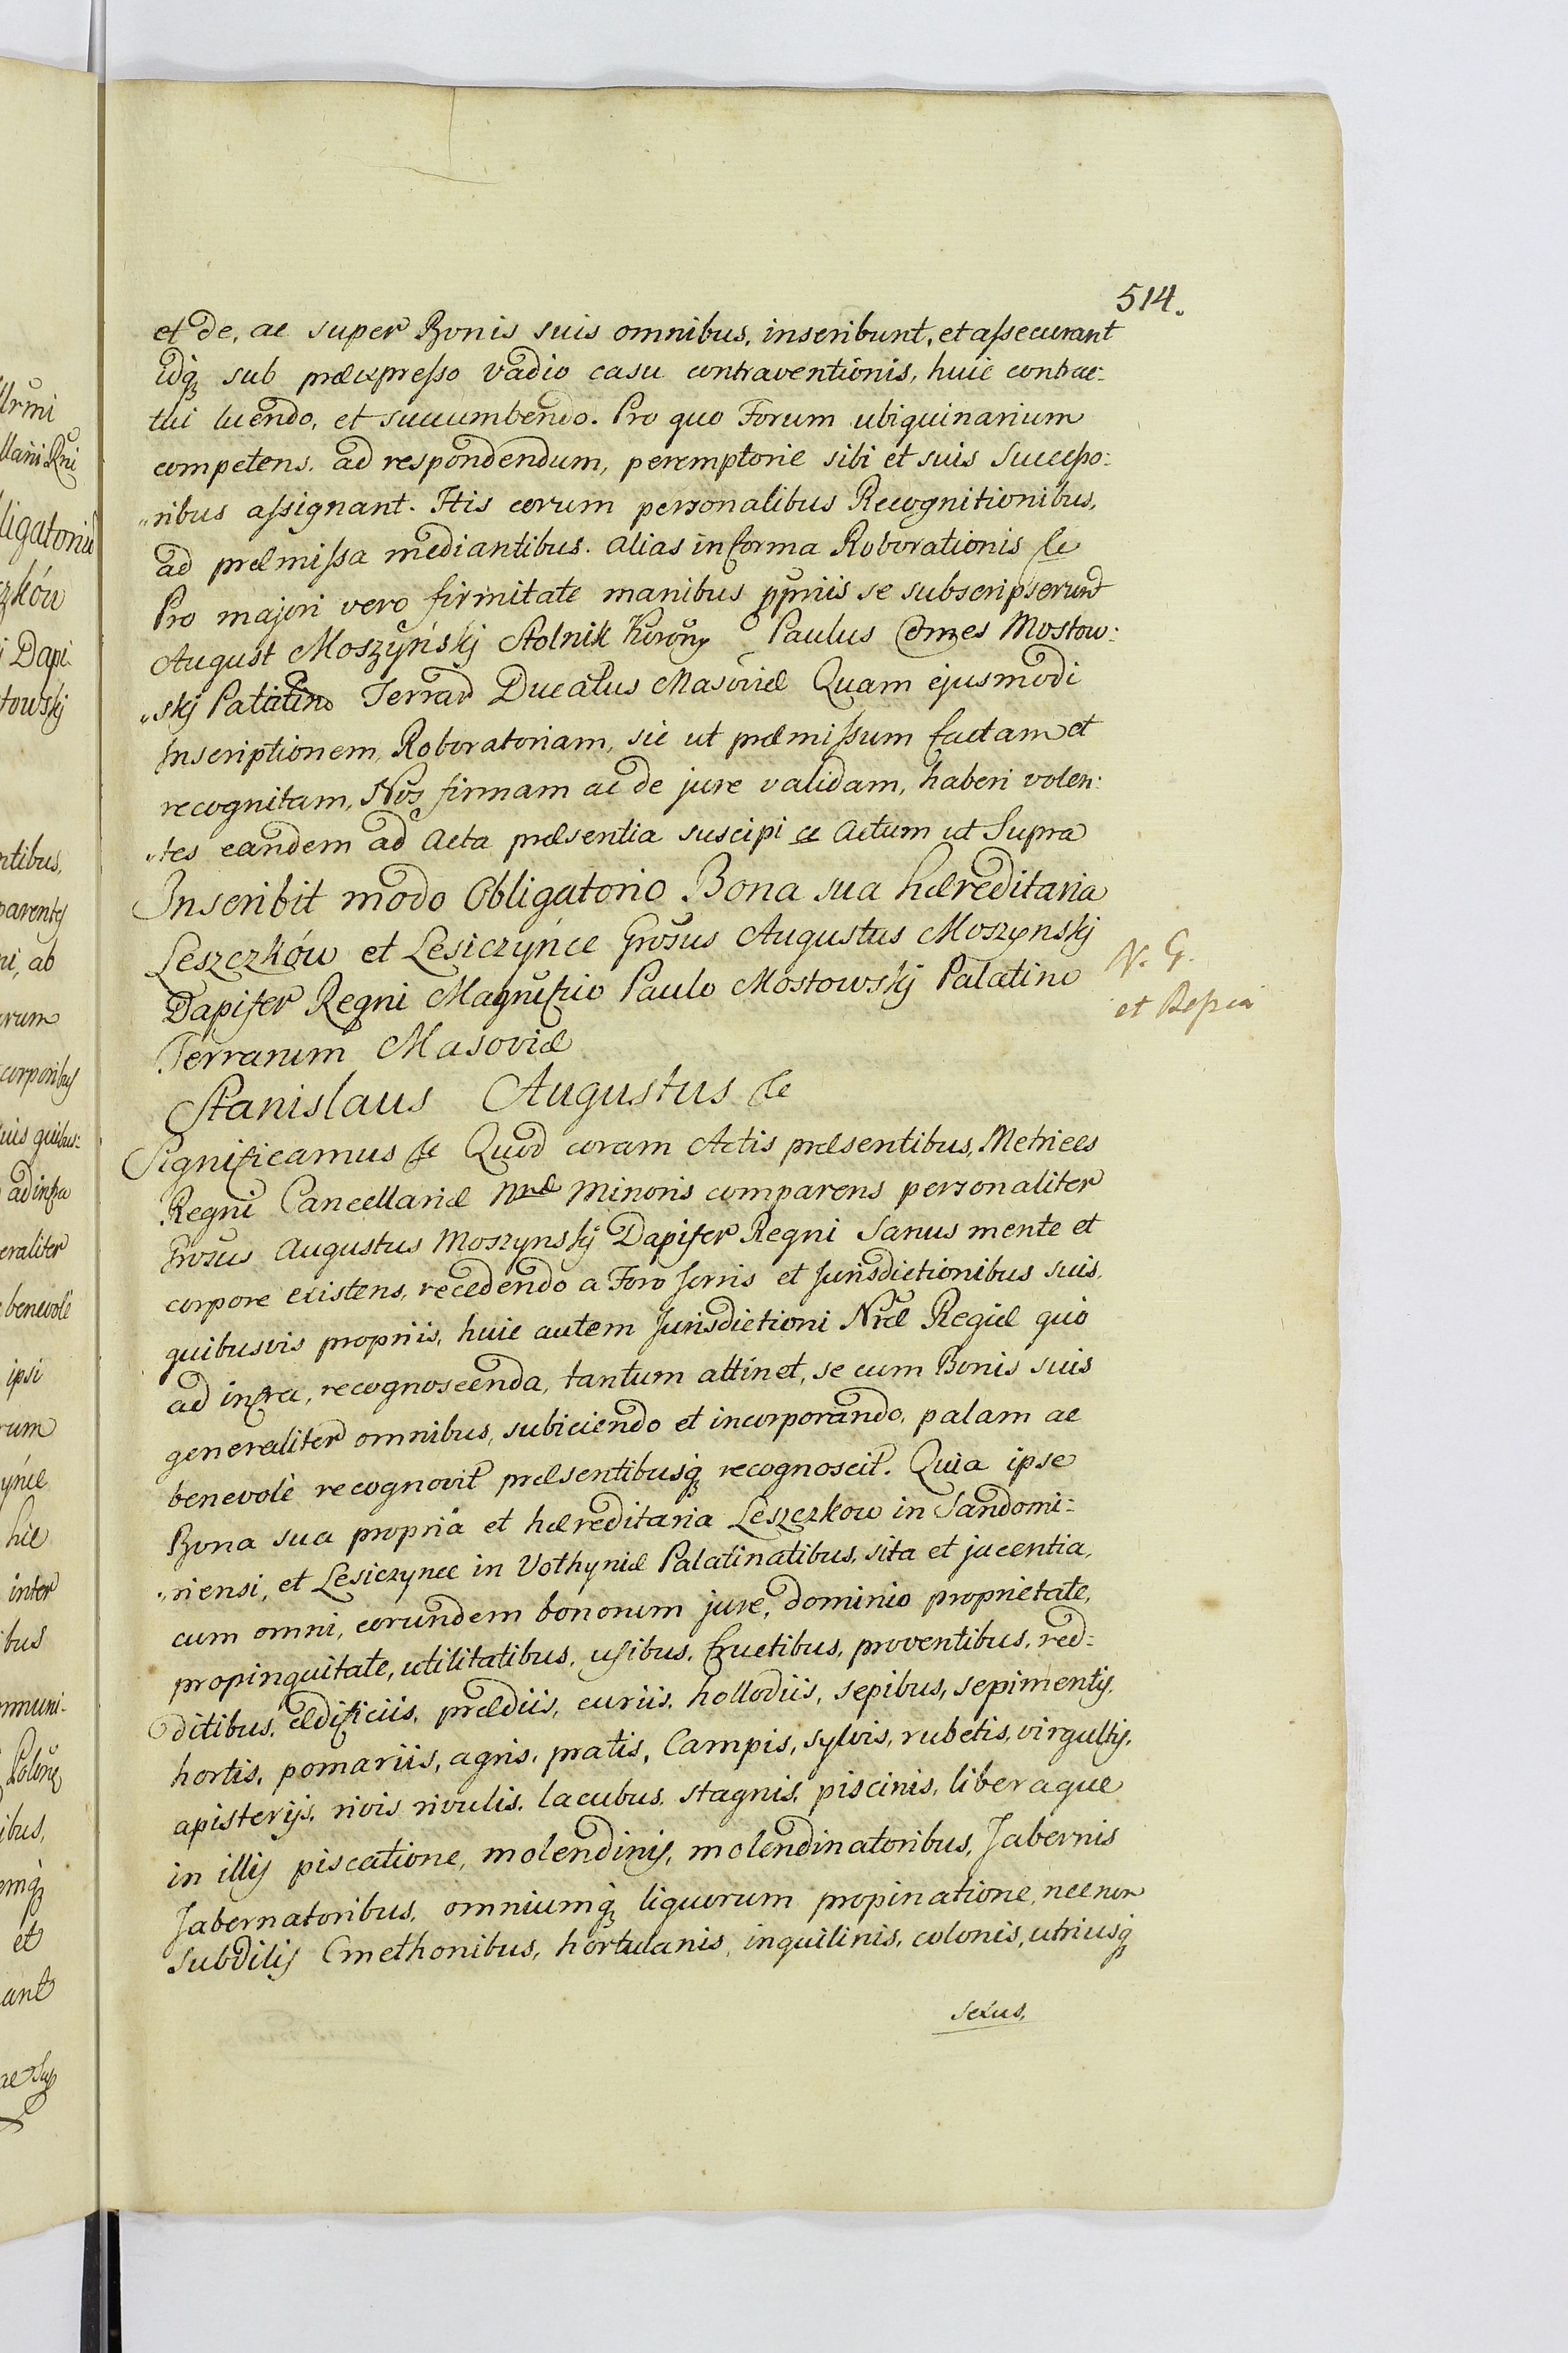 514.
et de, ac super Bonis suis omnibus, inscribunt, et assecurant
idq̢ sub præexpresso vadio casu contraventionis, huic contrac:
tui luendo, et succumbendo. Pro quo Forum ubiquinarium
competens, ad respondendum, peremptorie sibi et suis Successo:
„ribus assignant. His eorum personalibus Recognitionibus,
ad præmissa mediantibus. alias in forma Roborationis &c
Pro majori vero firmitate manibus ppriis se subscripserunt
August Moszyński Stolnik Korony Paulus Comes Mostow:
„skj Palatino Terrar Ducatus Masoviæ Quam ejusmodi
Inscriptionem, Roboratoriam, sic ut præmissum factam et
recognitam, Nos firmam ac de jure validam, haberi volen:
„tes eandem ad Acta præsentia suscipi &c Actum ut Supra
Inscribit modo Obligatorio Bona sua hæreditaria
Leszczków et Lesiczyńce Grosus Augustus Moszynskj
Dapifer Regni Magnifico Paulo Mostowskj Palatino
Terrarum Masoviæ
N. G.
et
Stanislaus Augustus &c
Significamus &c Quod coram Actis præsentibus, Metrices
Regni Cancellariæ Nræ Minoris comparens personaliter
Grosus Augustus Moszynskj Dapifer Regni Sanus mente et
corpore existens, recedendo a Foro Jorris et Jurisdictionibus suis,
quibusvis propriis, huic autem Jurisdictioni Nræ Regiæ quo
ad infra, recognoscenda, tantum attinet, se cum Bonis suis
generaliter omnibus, subiciendo et incorporando, palam ac
benevole recognovit præsentibusq̢ recognoscit. Quia ipse
Bona sua propria et hæreditaria Leszczkow in Sandomi:
„riensi, et Lesiczynce in Vothyniæ Palatinatibus, sita et jacentia,
cum omni, eorundem bonorum jure, dominio proprietate,
propinquitate, utilitatibus, usibus, fructibus, proventibus, red:
ditibus, ædificiis, prædiis, curiis, hollodiis, sepibus, sepimentis,
hortis, pomariis, agris, pratis, Campis, sylvis, rubetis, virgultis,
apisterijs, rivis rivulis, lacubus, stagnis, piscinis, liberaque
in illis piscatione, molendinis, molendinatoribus, Tabernis
Tabernatoribus, omniumq̢ liquorum propinatione, necnon
subditis Cmethonibus, hortulanis, inquilinis, colonis, utriusq̢
sexus,